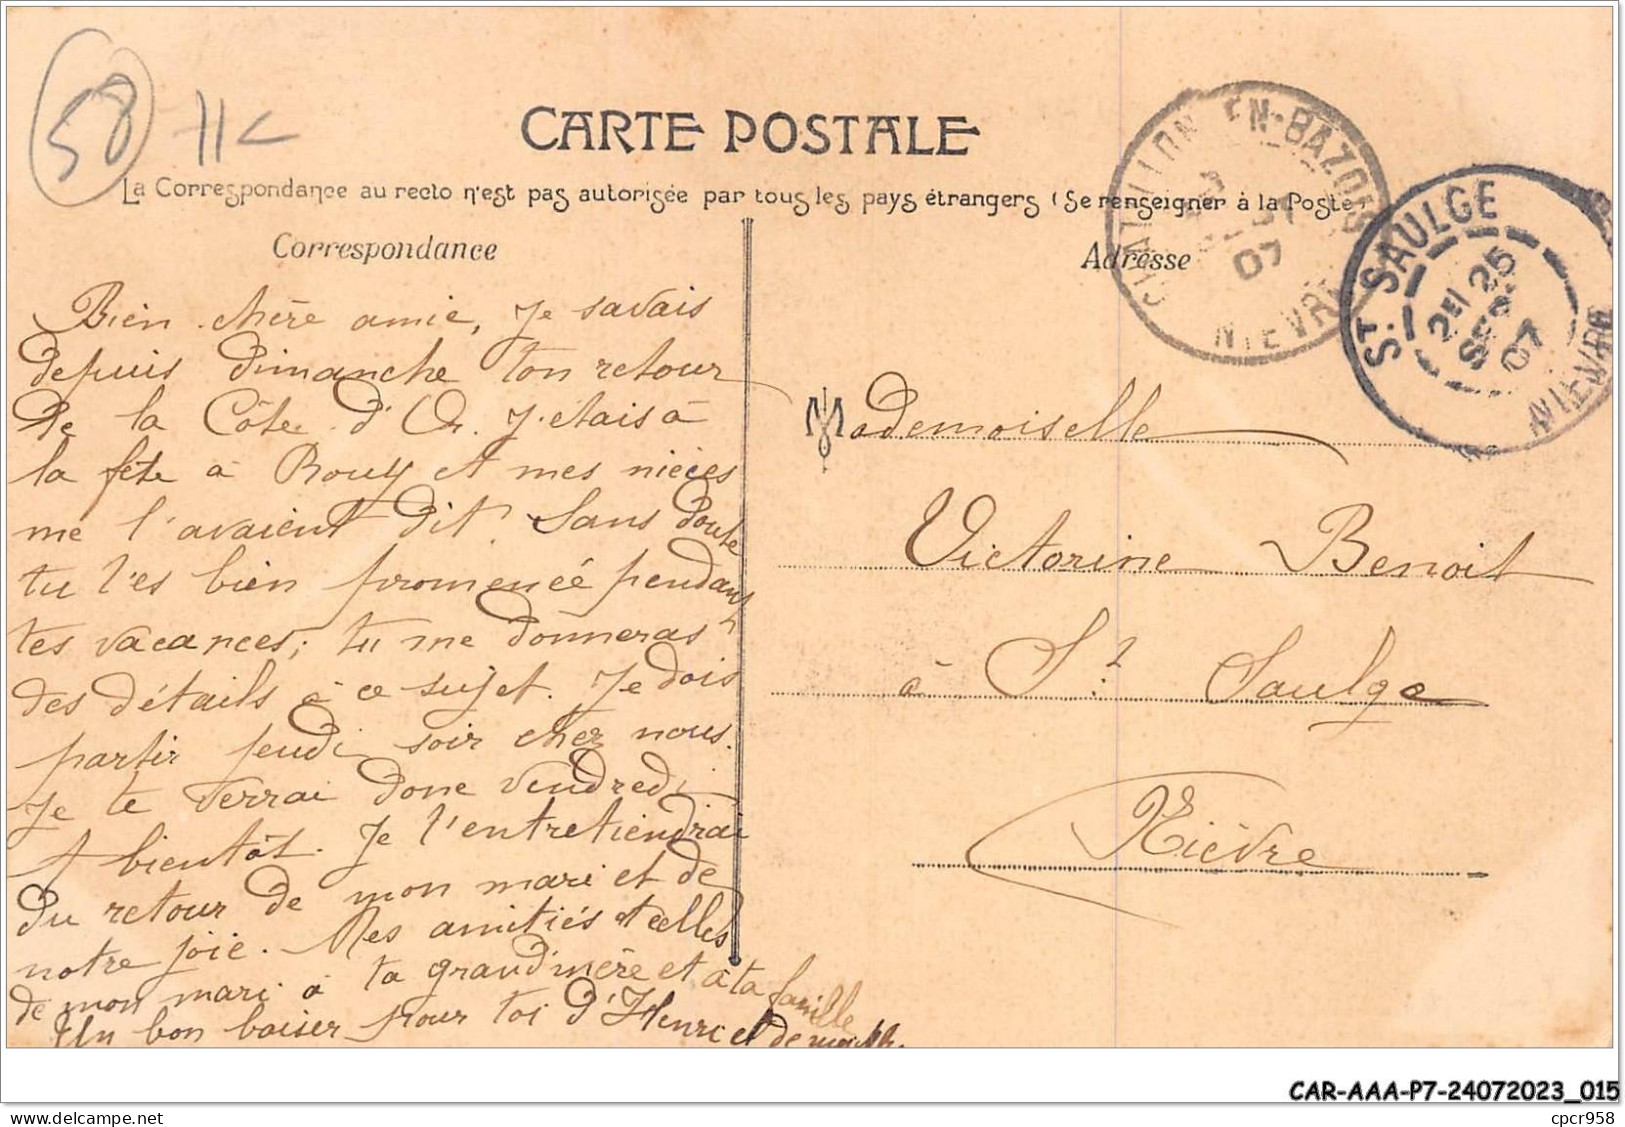 58 11c
CARTE POSTALE
La Correspondance au recto n'est pas autorisée par tous les pays étrangers (Se renseigner à la Poste)
Correspondance
Bien chère amie, Je savais
depuis dimanche ton retour
de la Côte d'Or. J'étais à
la fête à Rouy et mes nièces
me l'avaient dit. Sans doute
tu t'es bien promenée pendant
tes vacances; tu me donneras
des détails à ce sujet. Je dois
partir jeudi soir chez nous.
Je te verrai donc vendredi
A bientôt. Je t'entretiendrai
du retour de mon mari et de
notre joie. Mes amitiés et celles
de mon mari à ta grand'mère et à ta famille
Un bon baiser pour toi d'Henri et de moi
Adresse
Mademoiselle
Victorine Benoit
à St Saulge
Nièvre
CHATILLON-EN-BAZOIS
07
NIEVRE
ST. SAULGE
2E 25
SEPT
07
NIEVRE
CAR-AAA-P7-24072023_015
cpcr958